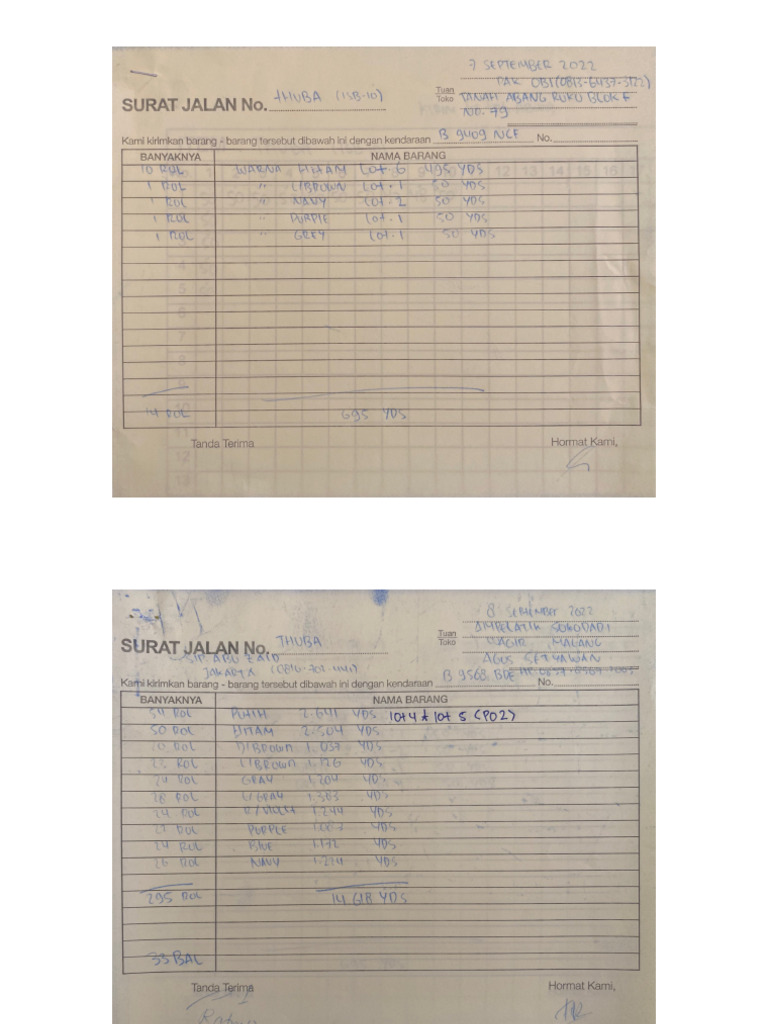 7 SEPTEMBER 2022
PAK OBI (0813-6437-3122)
SURAT JALAN No. THUBA (11B-10)
Tuan
Toko
TANAH ABANG RUKO BLOK F
NO. 79
Kami kirimkan barang - barang tersebut dibawah ini dengan kendaraan B 9409 NCF No.
BANYAKNYA NAMA BARANG
10 ROL WARNA HITAM Lot. 6 495 YDS
1 ROL " L/BROWN Lot. 1 50 YDS
1 ROL " NAVY Lot. 2 50 YDS
1 ROL " PURPLE Lot. 1 50 YDS
1 ROL " GREY Lot. 1 50 YDS
14 ROL 695 YDS
Tanda Terima Hormat Kami,
8 SEPTEMBER 2022
SURAT JALAN No. THUBA
Tuan
Toko
SUKODADI
WAGIR, MALANG
AGUS SETYAWAN
ABU ZAID
JAKARTA
Kami kirimkan barang - barang tersebut dibawah ini dengan kendaraan B 9568 BDE No.
BANYAKNYA NAMA BARANG
54 ROL PUTIH 2.641 YDS lot 4 & lot 5 (PO2)
50 ROL HITAM 2.504 YDS
ROL D/BROWN 1.037 YDS
23 ROL L/BROWN 1.126 YDS
24 ROL GRAY 1.204 YDS
28 ROL L/GRAY 1.383 YDS
24 ROL 1.244 YDS
ROL PURPLE YDS
24 ROL BLUE 1.172 YDS
26 ROL NAVY YDS
295 ROL 14.618 YDS
33 BAL
Tanda Terima Hormat Kami,